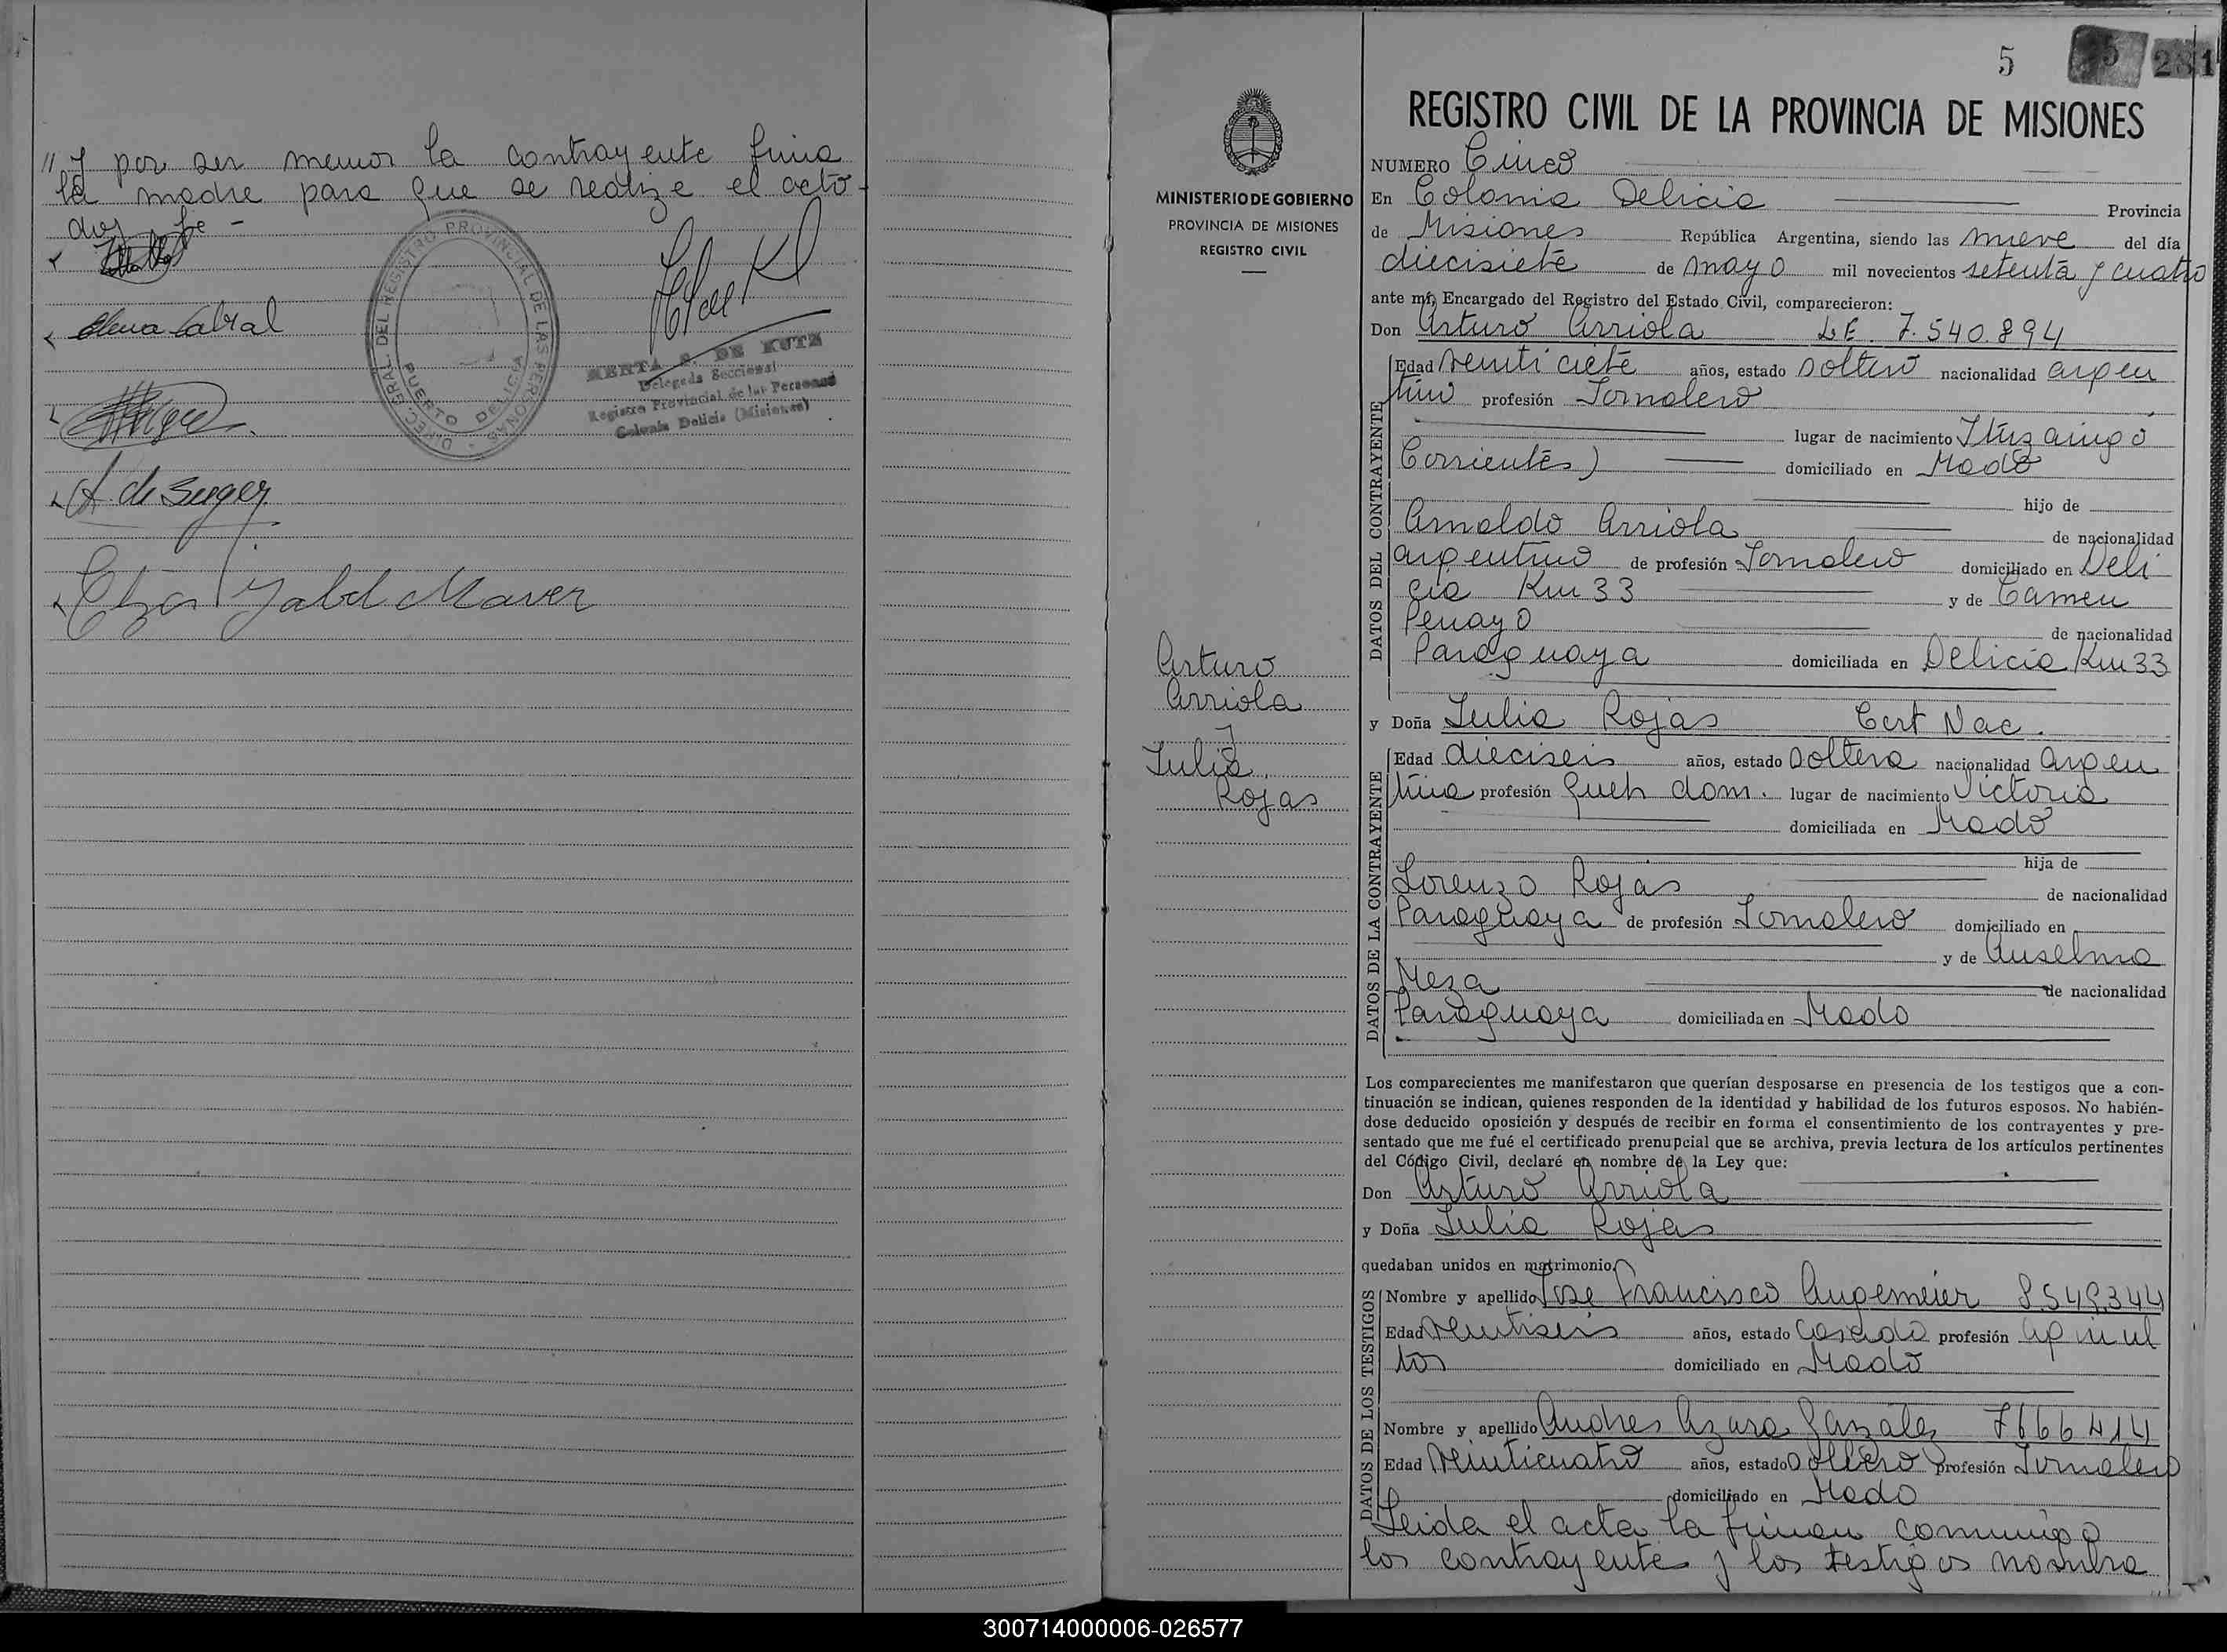 " y por ser menor la contrayente firma
la madre para que se realize el acto -
doy fe -
Elena Cabral
A. de Suger
DIREC. GRAL. DEL REGISTRO PROVINCIAL DE LAS PERSONAS
PUERTO DELICIA
BERTA S. DE KUTZ
Delegada Seccional
Registro Provincial de las Personas
Colonia Delicia (Misiones)
5 281
MINISTERIO DE GOBIERNO
PROVINCIA DE MISIONES
REGISTRO CIVIL
Arturo
Arriola
y
Julia
Rojas
REGISTRO CIVIL DE LA PROVINCIA DE MISIONES
NUMERO Cinco
En Colonia Delicia Provincia
de Misiones República Argentina, siendo las nueve del día
diecisiete de mayo mil novecientos setenta y cuatro
ante mí, Encargado del Registro del Estado Civil, comparecieron:
Don Arturo Arriola L.E. 7.540.894
DATOS DEL CONTRAYENTE
Edad veinti ciete años, estado soltero nacionalidad argen
tino profesión Jornalero
lugar de nacimiento Ituzaingo
Corrientes) domiciliado en Mado
hijo de
Arnaldo Arriola de nacionalidad
argentino de profesión Jornalero domiciliado en Deli
cia Km 33 y de Carmen
Penayo de nacionalidad
Paraguaya domiciliada en Delicia Km 33
y Doña Julia Rojas Cert Nac.
DATOS DE LA CONTRAYENTE
Edad dieciseis años, estado soltera nacionalidad argen
tina profesión queh dom. lugar de nacimiento Victoria
domiciliada en Mado
hija de
Lorenzo Rojas de nacionalidad
Paraguaya de profesión Jornalero domiciliado en
y de Anselma
Meza de nacionalidad
Paraguaya domiciliada en Mado
Los comparecientes me manifestaron que querían desposarse en presencia de los testigos que a con-
tinuación se indican, quienes responden de la identidad y habilidad de los futuros esposos. No habién-
dose deducido oposición y después de recibir en forma el consentimiento de los contrayentes y pre-
sentado que me fué el certificado prenupcial que se archiva, previa lectura de los artículos pertinentes
del Código Civil, declaré en nombre de la Ley que:
Don Arturo Arriola
y Doña Julia Rojas
quedaban unidos en matrimonio.
DATOS DE LOS TESTIGOS
Nombre y apellido Jose Francisco Angemeier 8.549.344
Edad veintiseis años, estado Casado profesión agricul
tor domiciliado en Mado
Nombre y apellido Andres Azara Gonzales 7666414
Edad veinticuatro años, estado soltero profesión Jornalero
domiciliado en Mado
Leida el acta la firman conmigo
los contrayente y los testigos nombra
300714000006-026577